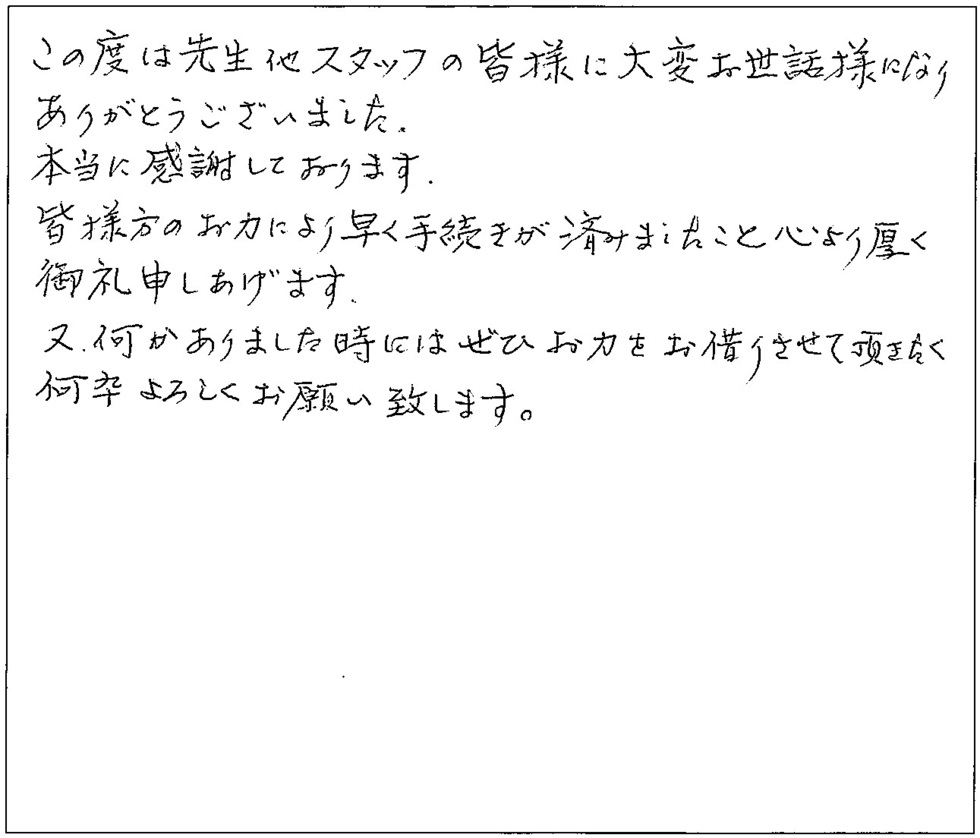 この度は先生他スタッフの皆様に大変お世話様になり
ありがとうございました.
本当に感謝しております.
皆様方のお力により早く手続きが済みましたこと心より厚く
御礼申しあげます.
又.何かありました時にはぜひお力をお借りさせて頂きたく
何卒よろしくお願い致します。